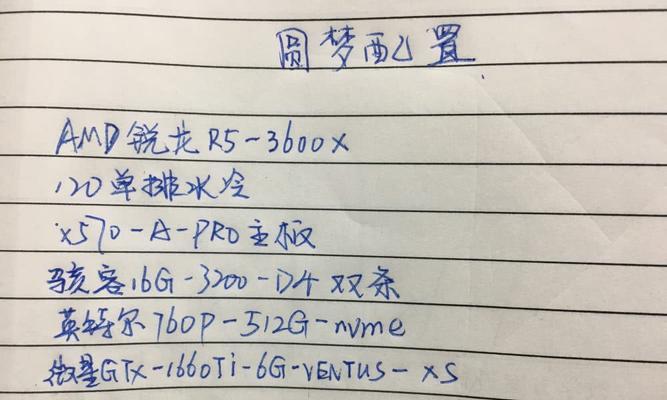 圆梦配置
AMD锐龙R5-3600X
120单排水冷
x570-A-PRO主板
骇客16G-3200-D4双条
英特尔760P-512G-nvme
微星GTX-1660Ti-6G-VENTUS-XS